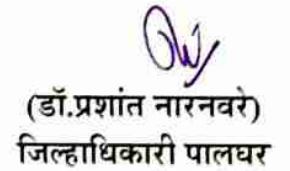 (डॉ.प्रशांत नारनवरे)
जिल्हाधिकारी पालघर